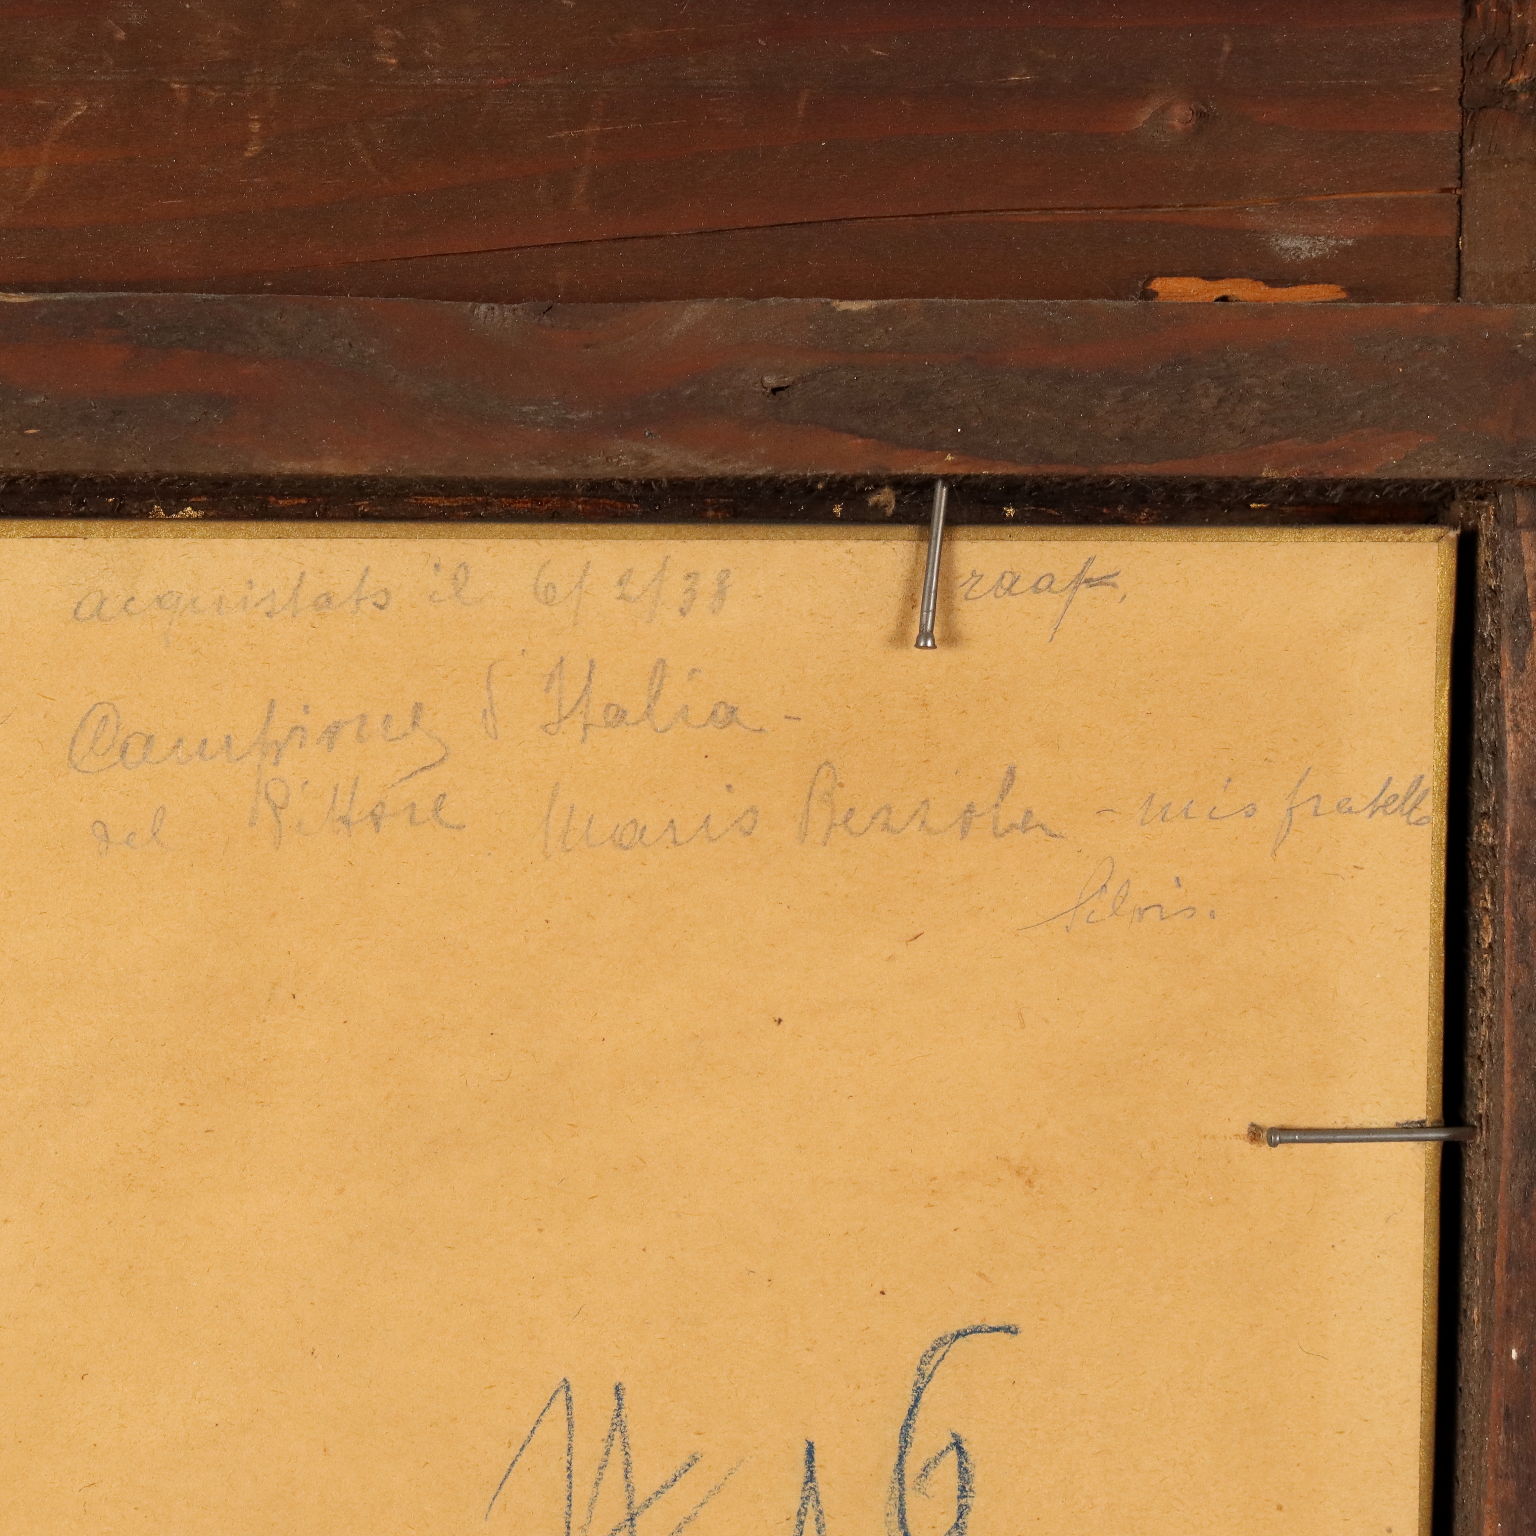 acquistato il 6/2/38 raap.
Campione d'Italia -
del Pittore Mario Bezzola - mio fratello
Silvio.
16